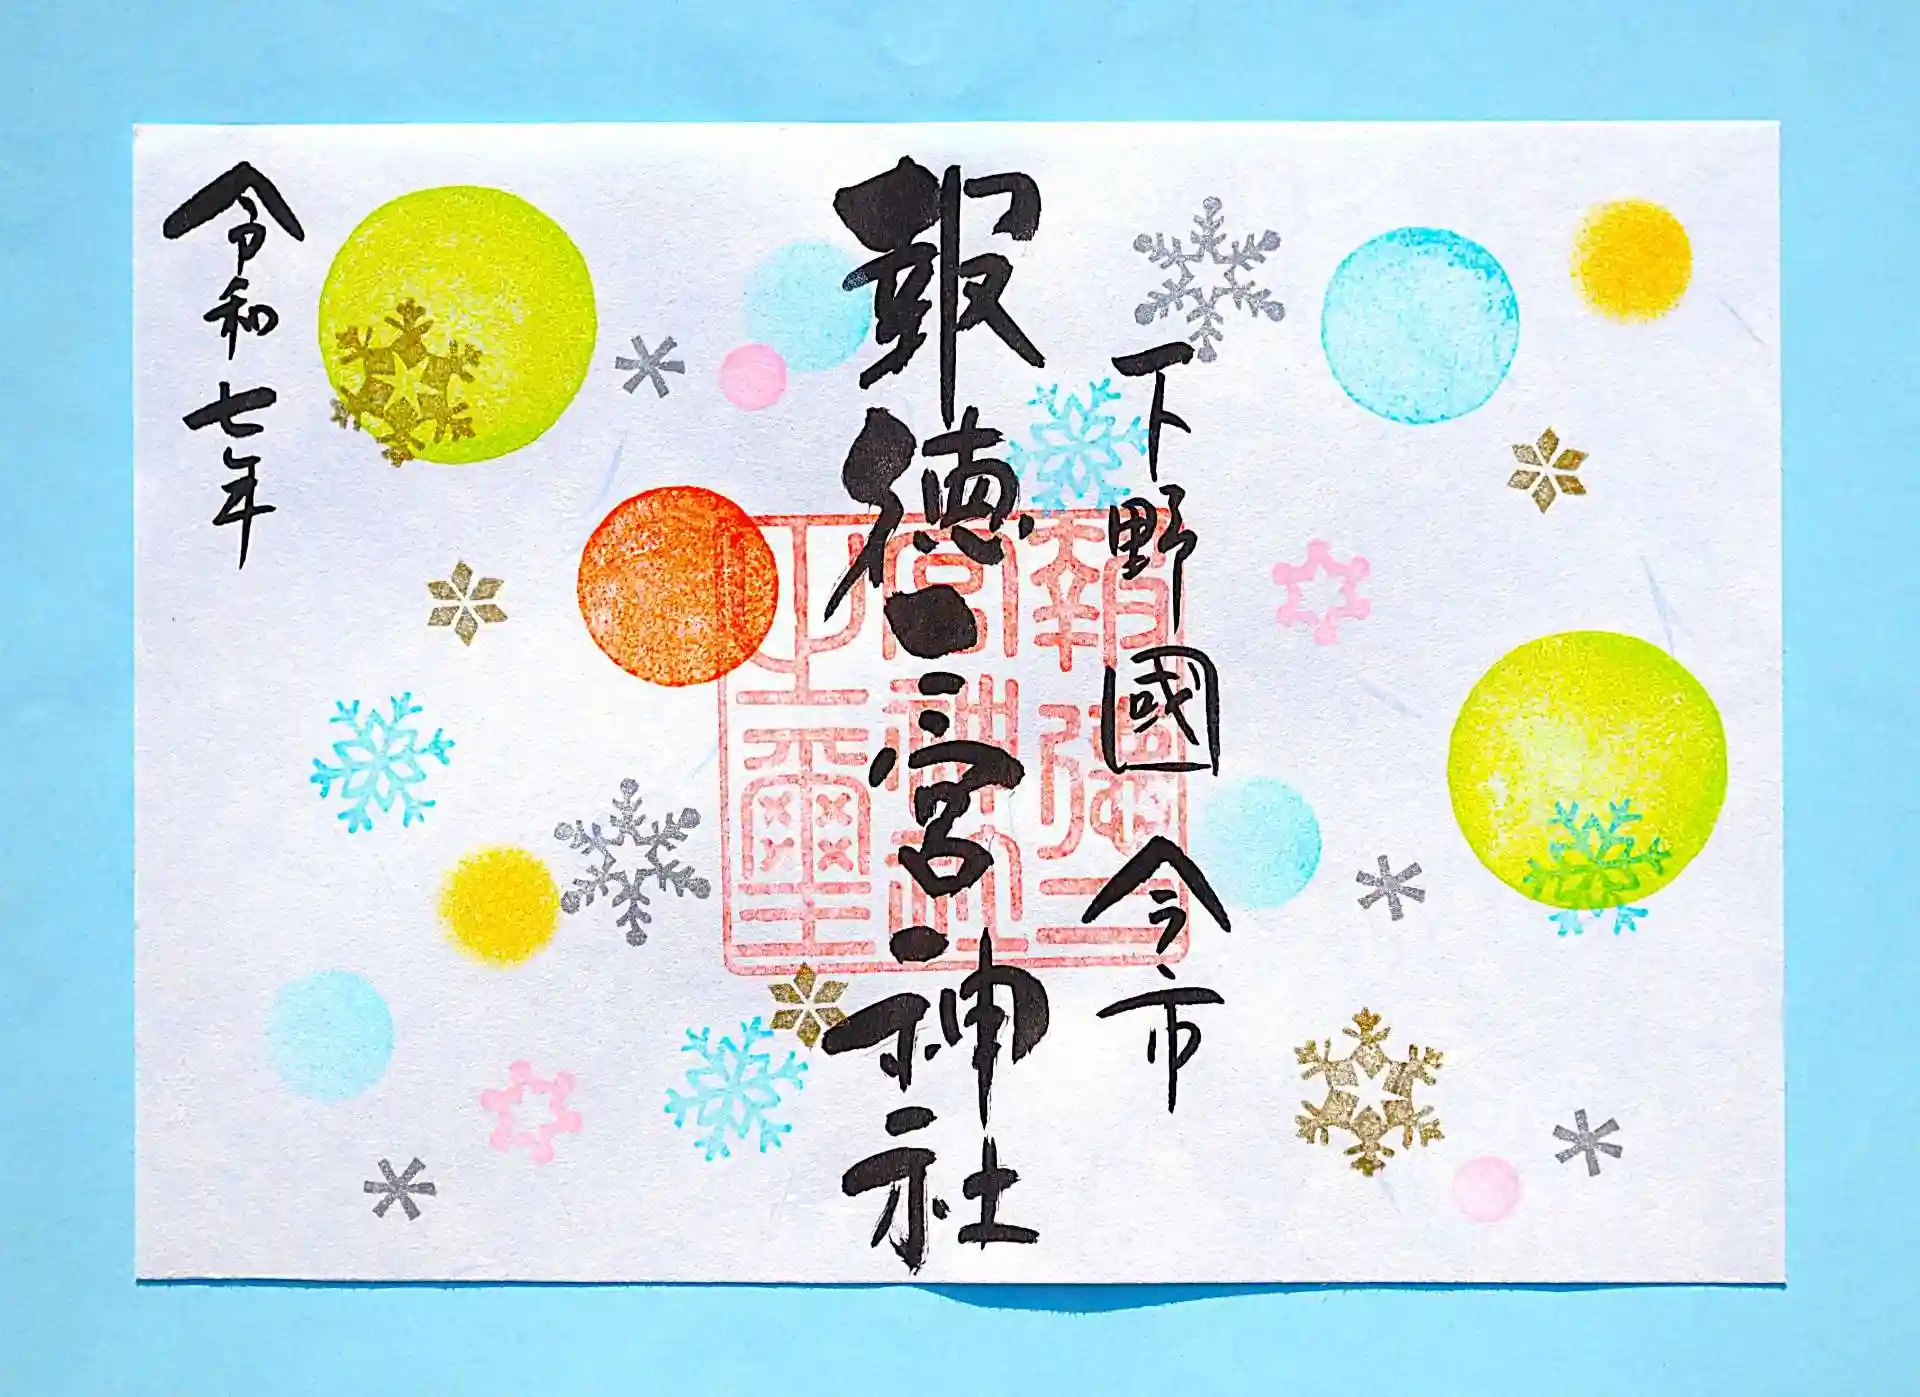 下野國 今市
報徳二宮神社
報徳二
宮神社
之璽
令和七年